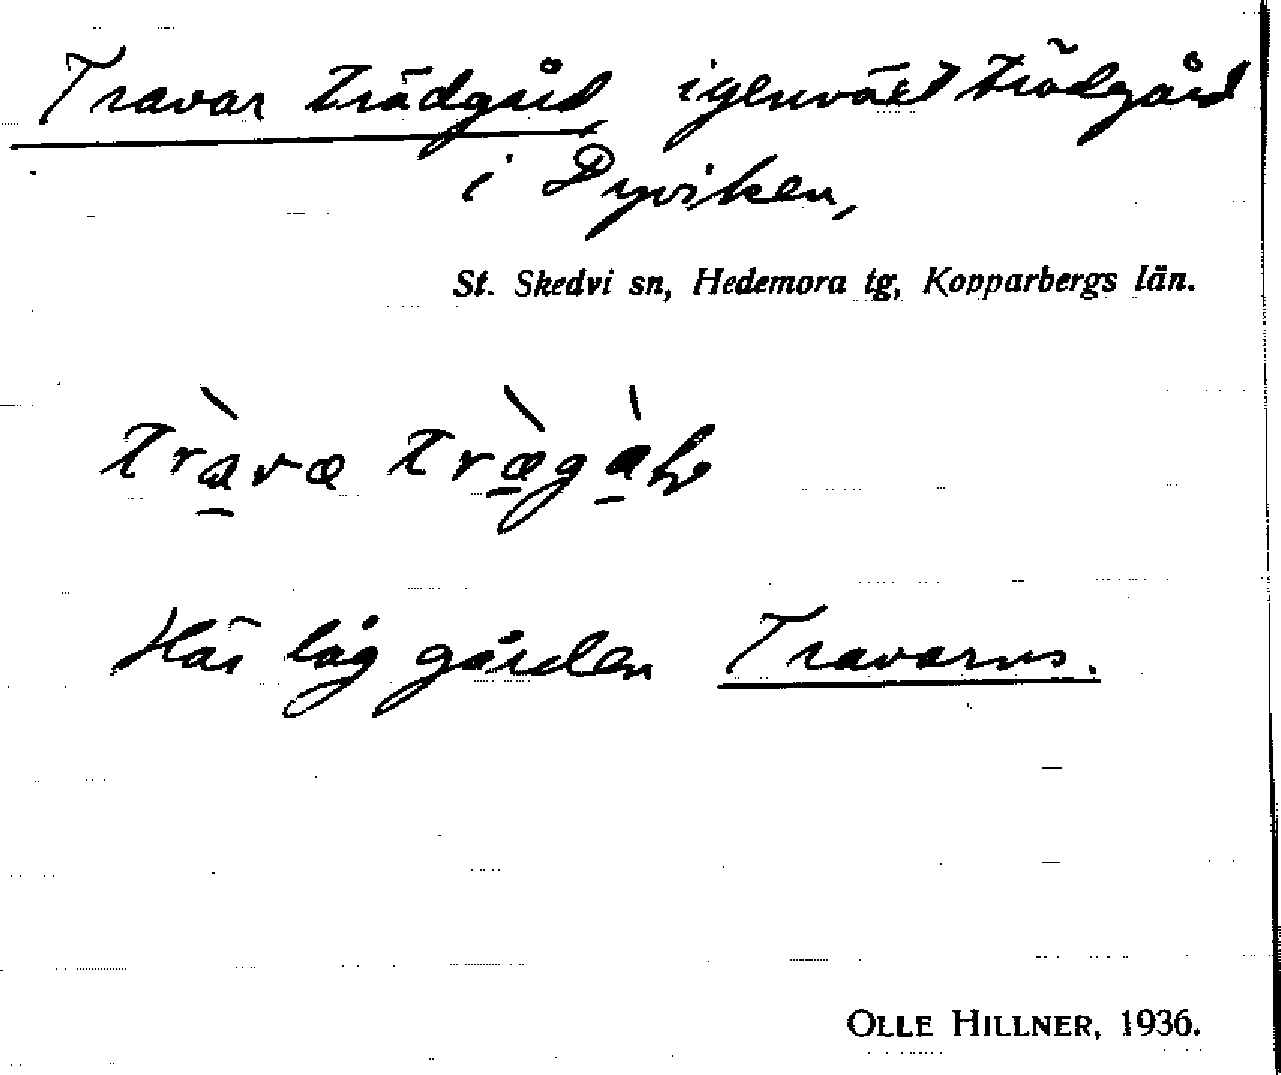 Travar trädgård, igenväxt trädgård
i Dyviken,
St. Skedvi sn, Hedemora tg, Kopparbergs län.
Här låg gården Travarns.
OLLE HILLNER, 1936.